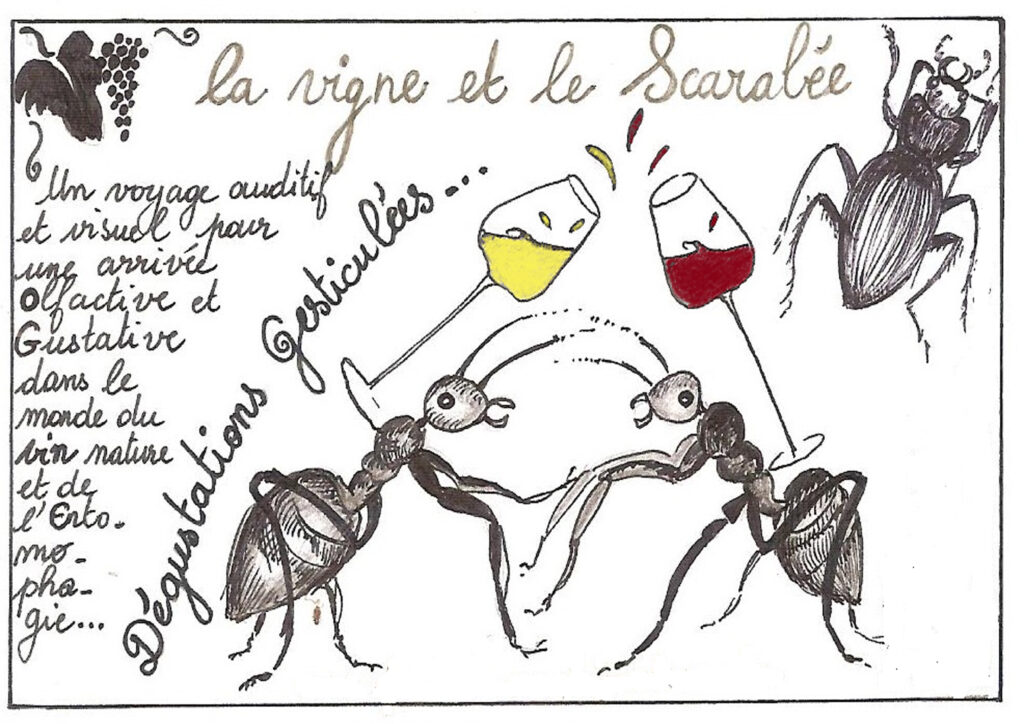 la vigne et le Scarabée
Un voyage auditif
et visuel pour
une arrivée
Olfactive et
Gustative
dans le
monde du
vin nature
et de
l'Ento-
mo-
pha-
gie...
Dégustations Gesticulées...